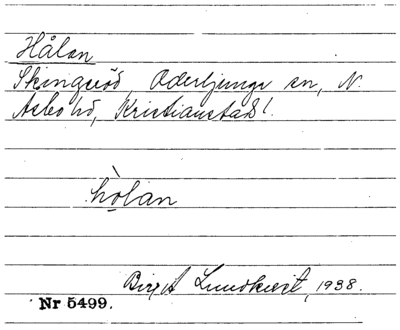 Hålan
Skingeröd, Oderljunga sn, N.
Asbo hd, Kristianstads l.
hò̱lan
Birgit Lundkvist, 1938.
Nr 5499.